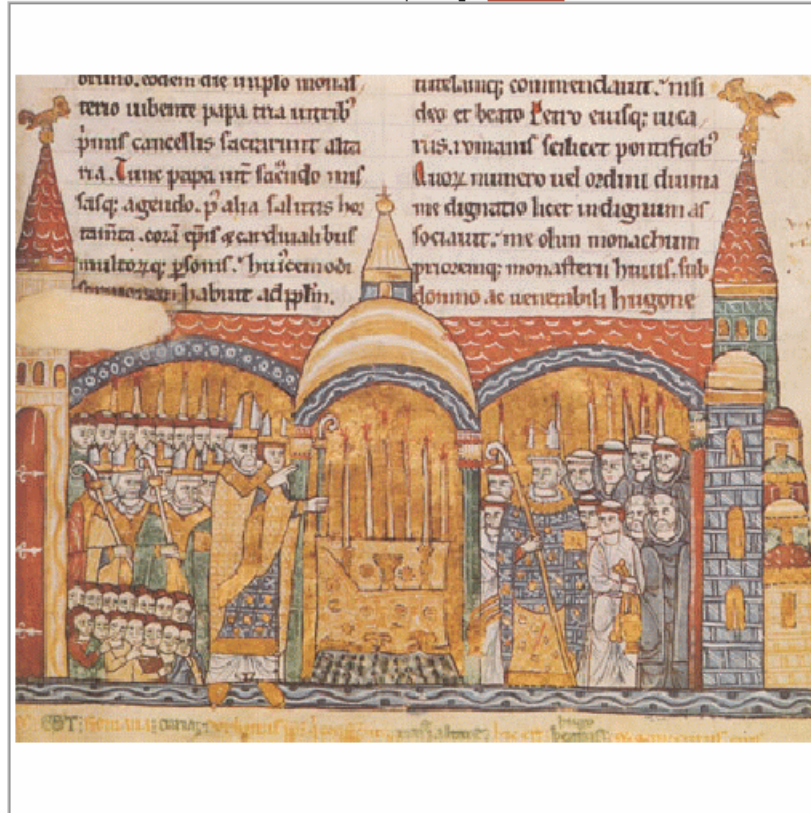 bruno. eodem die in ipso monas
terio iubente papa tria in trib'
primis cancellis sacrarunt alta
ria. Tunc papa int̄ sac̄ndo mis
sasq; agendo. p' alia salutis hor
tam̄ta. corā ep̄is & cardinalibus
multorūq; p̄sonis. huicemodi
sermonem habuit ad pp̄lm.
tutelamq; commendauit. nisi
deo et beato Petro eiusq; uica
riis. romanis scilicet pontificib'
Quoꝝ numero uel ordini diuina
me dignatio licet indignum as
sociauit. me olim monachum
prioremq; monasterii huius. sub
domno ac uenerabili hugone